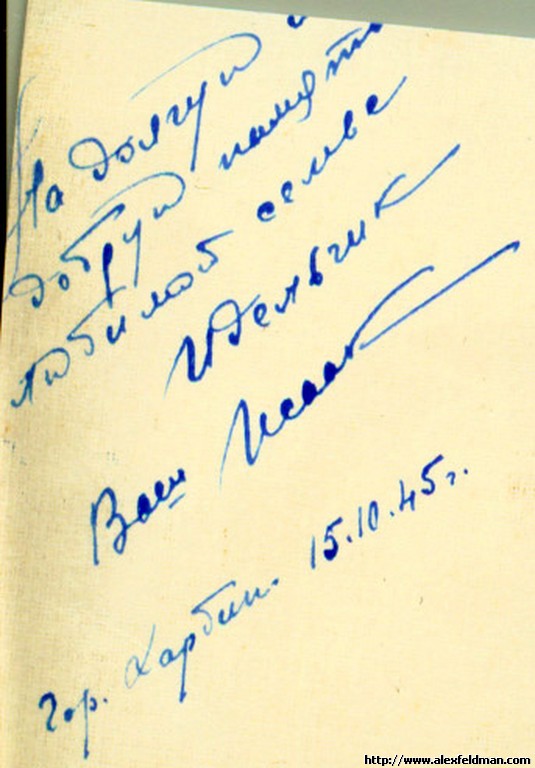 На долгую и
добрую память
любимой семье
Идельчик
Ваш Исаак
Гор. Харбин. 15.10.45г.
http://www.alexfeldman.com